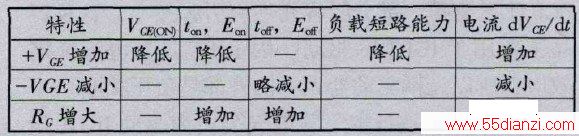 特性 VCE(ON) ton, Eon toff, Eoff 负载短路能力 电流 dVCE/dt
+VGE 增加 降低 降低 — 降低 增加
-VGE 减小 — — 略减小 — 减小
RG 增大 — 增加 增加 —
www.55dianzi.com